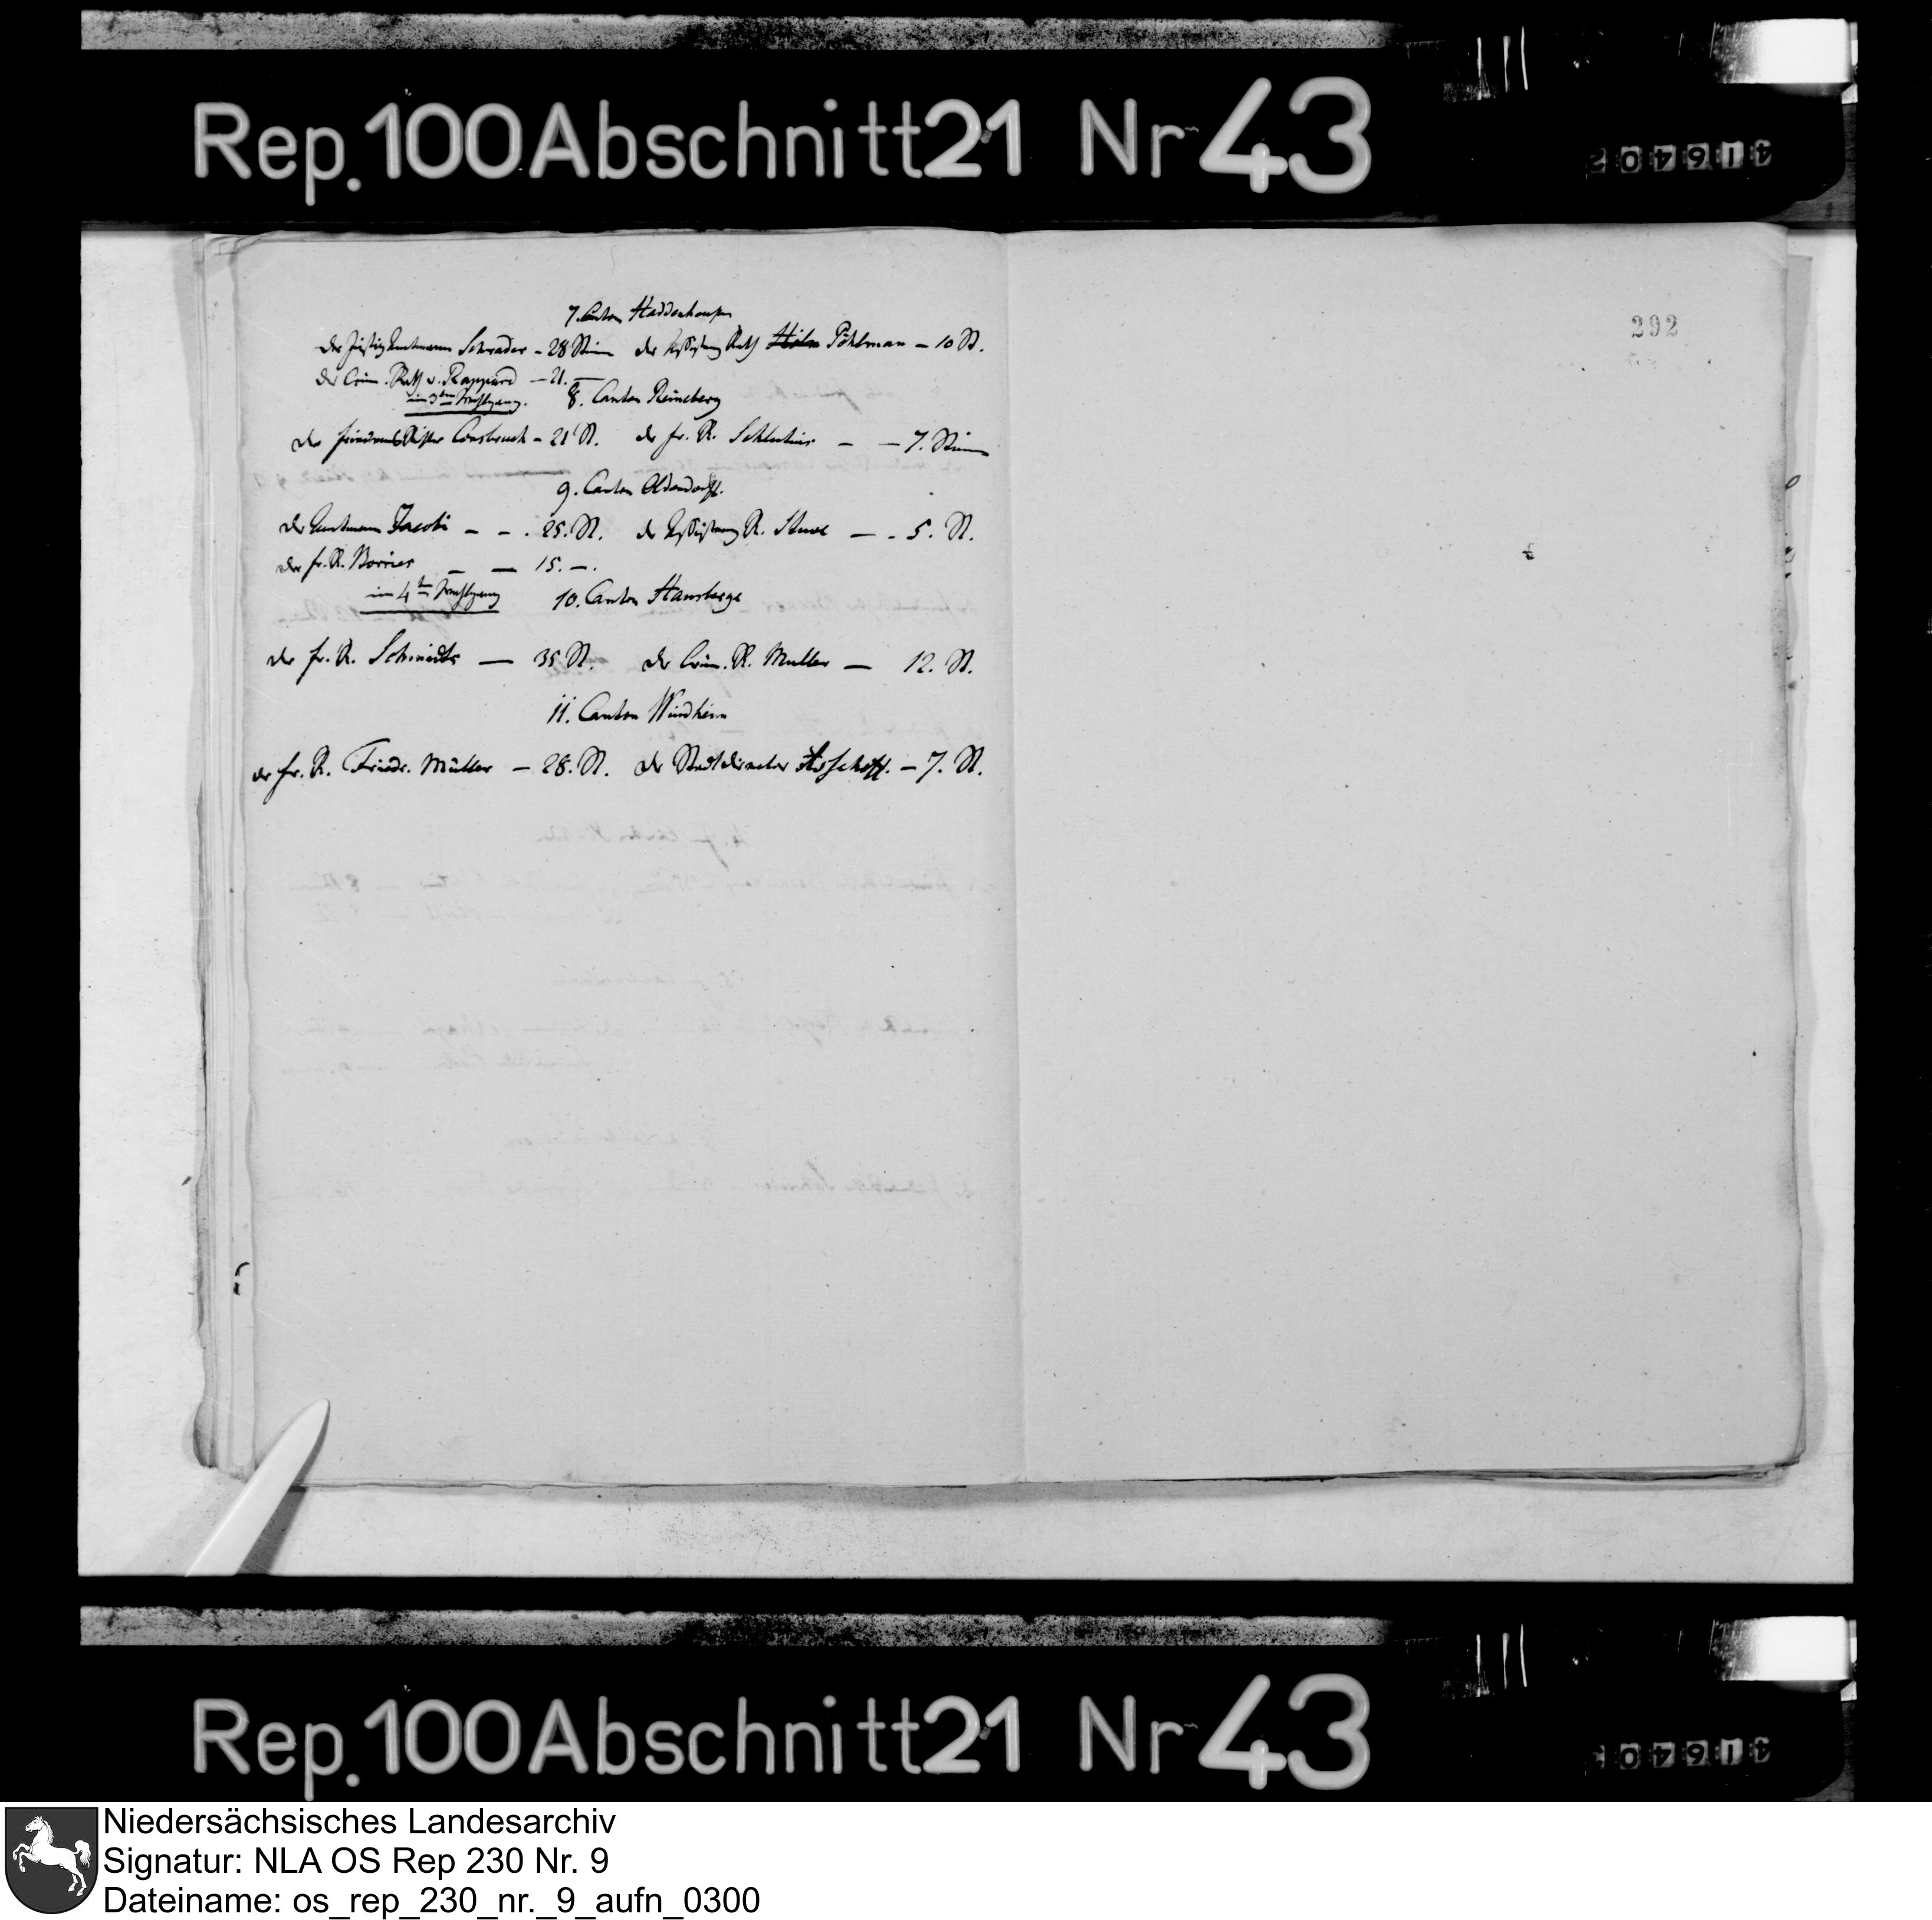 Rep. 100 Abschnitt 21 Nr 43
292
7. Canton Haddenhausen
der Justizamtmann Schrader – 28 Stim der Rath Pöhlman – 10 St.
der Crim. Rath v. Rappard – 21. –
im 3ten Wahlgang.
8. Canton Reineberg
der Friedens Richter Consbruch – 21 St. der fr. R. Schlutius – – 7. Stim
9. Canton Oldendorff.
der Amtmann Jacobi – – . 25. St. der R. Stuve – – 5. St.
der fr. R. Borries – – 15. –.
im 4ten Wahlgang
10. Canton Hausberge
der fr. R. Schmidts – 35 St. der Crim. R. Muller – 12. St.
11. Canton Windheim
der fr. R. Friedr. Müller – 28. St. der Stadtdirector Aschoff. – 7. St.
Rep. 100 Abschnitt 21 Nr 43
Niedersächsisches Landesarchiv
Signatur: NLA OS Rep 230 Nr. 9
Dateiname: os_rep_230_nr._9_aufn_0300